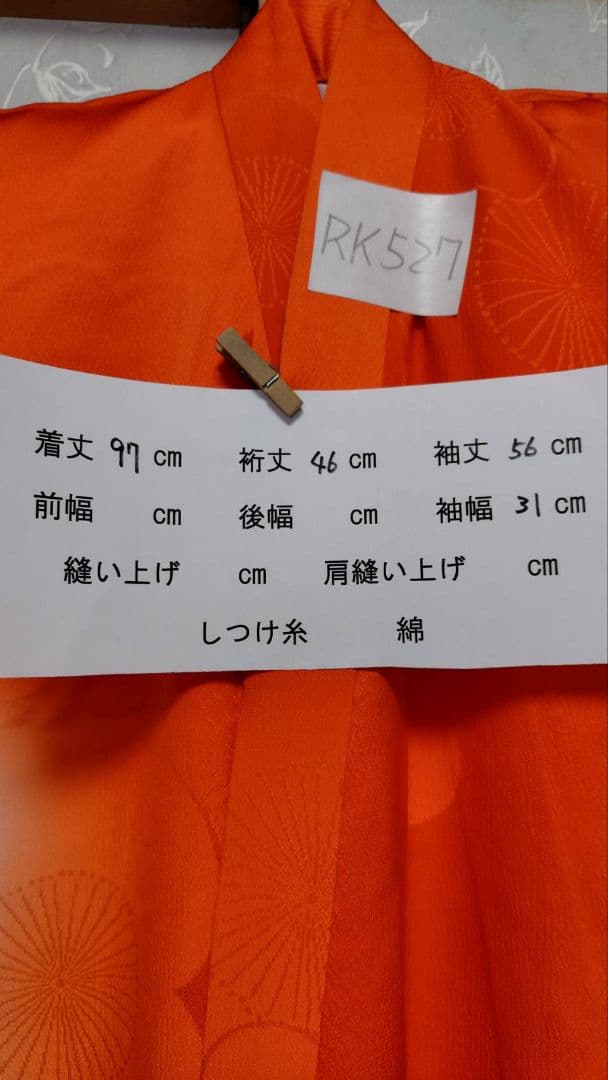 RK527
着丈 97 cm 裄丈 46 cm 袖丈 56 cm
前幅 cm 後幅 cm 袖幅 31 cm
縫い上げ cm 肩縫い上げ cm
しつけ糸 綿